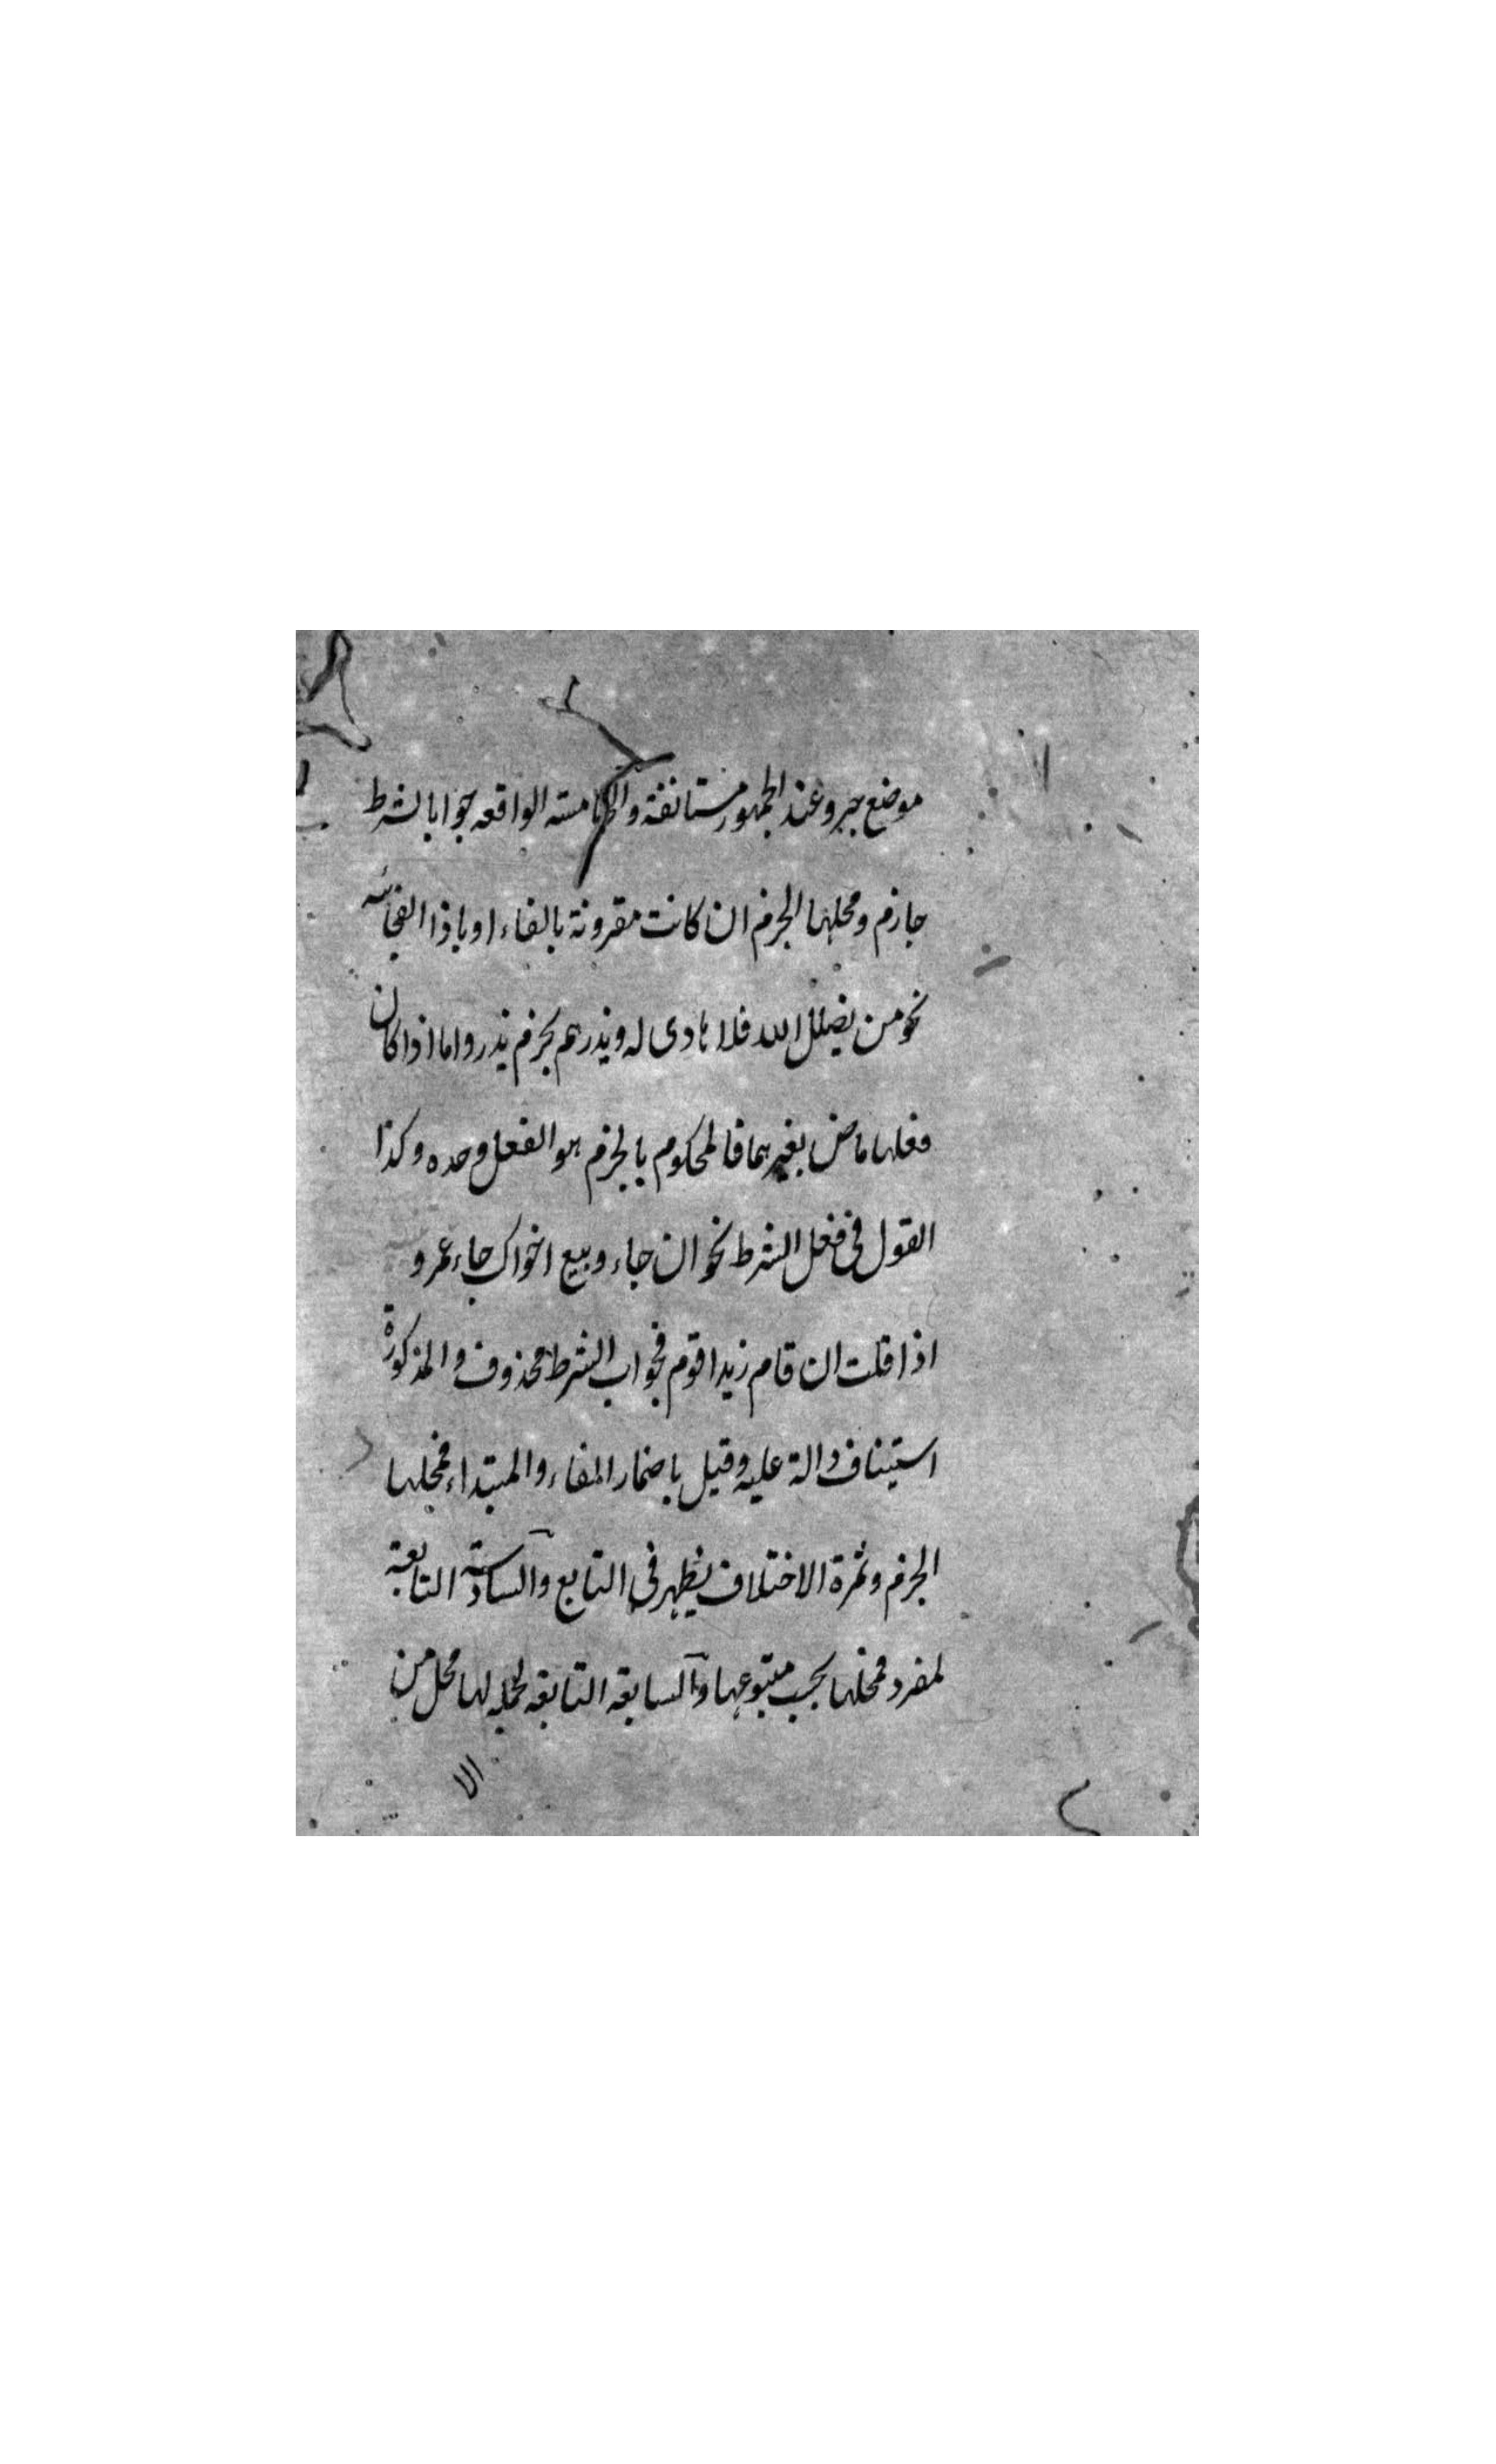 موضع جر وعند الجمهور مستانفة والخامسته الواقعه جوابا لشرط
جازم ومحلها الجزم ان كانت مقرونة بالفاء او باذا الفجائيه
نحو من يضلل الله فلا هادى له ويذرهم بجزم يذر واما اذا كان
فعلها ماض بغيرهما فالمحكوم بالجزم هو الفعل وحده وكذا
القول فى فعل الشرط نحو ان جاء وبيع اخواك جاء عمرو
اذا قلت ان قام زيد اقوم فجواب الشرط محذوف والمذكورة
استيناف دالة عليه وقيل باضمار الفاء والمبتداء فمحلها
الجزم وثمرة الاختلاف يظهر فى التابع والسادسة التابعة
لمفرد فمحلها بحسب متبوعها والسابعه التابعه لجمله لها محل من
الا